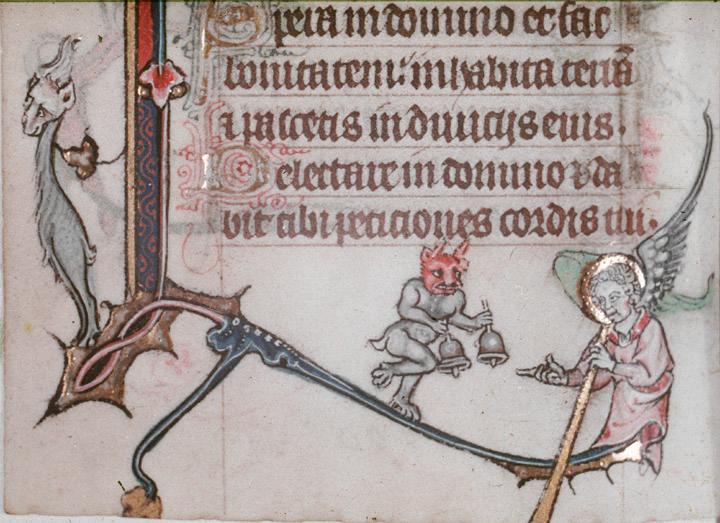 Spera in domino et fac
bonitatem: inhabita terrā
⁊ pasceris in diuicijs eius.
Delectare in domino ⁊ da
bit tibi peticiones cordis tui.